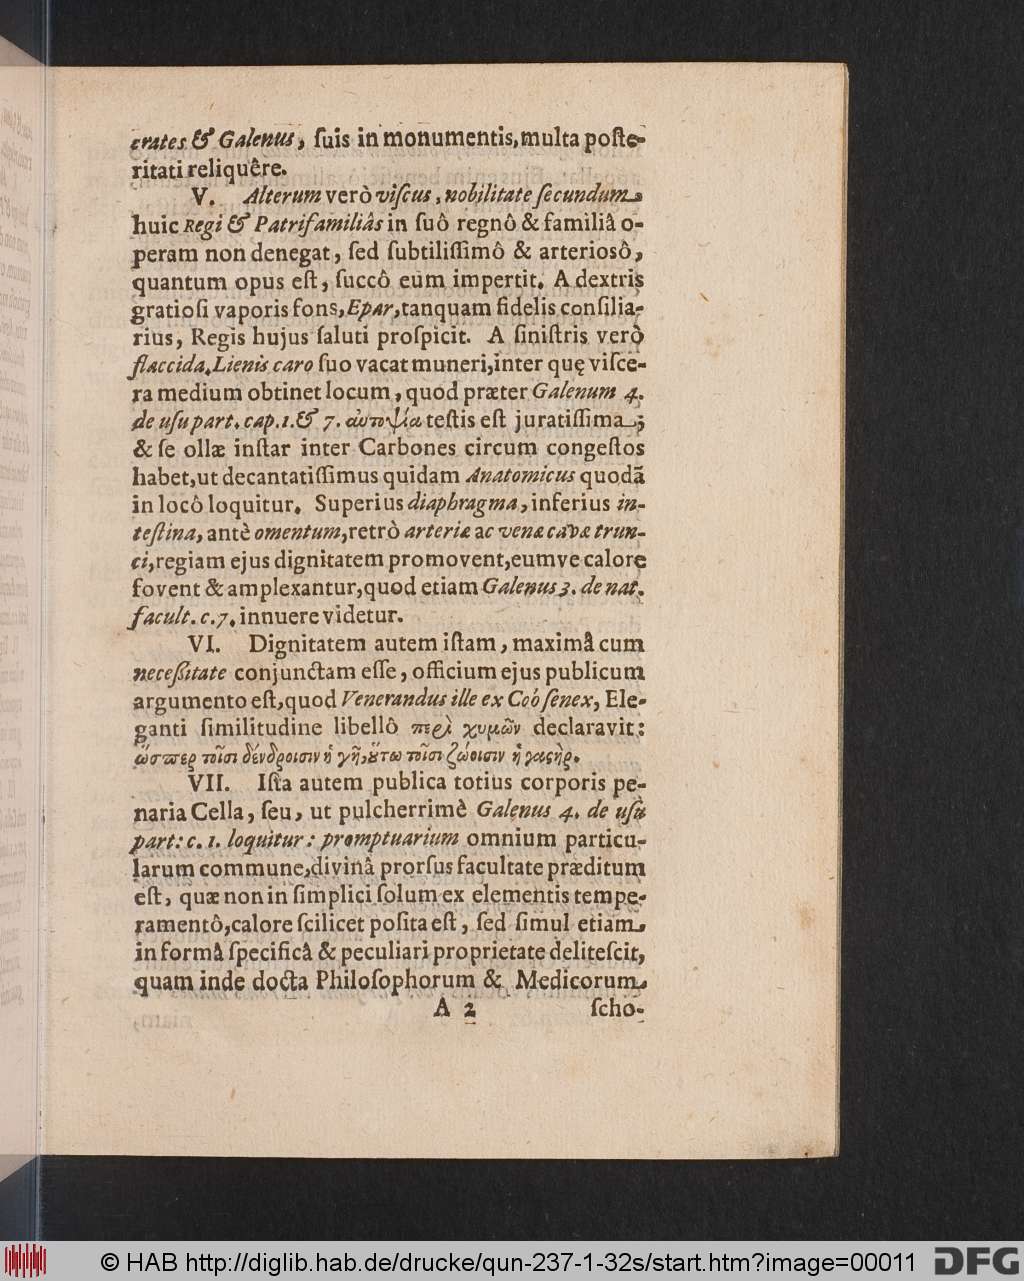 crates & Galenus, ſuis in monumentis, multa poſte-
ritati reliquêre.
V. Alterum verò viſcus, nobilitate ſecundum
huic Regi & Patrifamiliâs in ſuô regnô & familiâ o-
peram non denegat, ſed ſubtiliſſimô & arteriosô,
quantum opus eſt, ſuccô eum impertit. A dextris
gratioſi vaporis fons, Epar, tanquam fidelis conſilia-
rius, Regis hujus ſaluti proſpicit. A ſiniſtris verò
flaccida Lienis caro ſuo vacat muneri, inter quę viſce-
ra medium obtinet locum, quod præter Galenum 4.
de uſu part. cap. 1. & 7. αὐτοψία teſtis eſt juratiſſima;
& ſe ollæ inſtar inter Carbones circum congeſtos
habet, ut decantatiſſimus quidam Anatomicus quodã
in locô loquitur. Superius diaphragma, inferius in-
teſtina, antè omentum, retrò arteriæ ac venæ cavæ trun-
ci, regiam ejus dignitatem promovent, eumve calore
fovent & amplexantur, quod etiam Galenus 3. de nat.
facult. c. 7. innuere videtur.
VI. Dignitatem autem iſtam, maximâ cum
neceſsitate conjunctam eſſe, officium ejus publicum
argumento eſt, quod Venerandus ille ex Coó ſenex, Ele-
ganti ſimilitudine libellô περὶ χυμῶν declaravit:
ὥσπερ τοῖσι δένδροισιν ἡ γῆ, ȣ̔́τω τοῖσι ζώοισιν ἡ γαςὴρ.
VII. Iſta autem publica totius corporis pe-
naria Cella, ſeu, ut pulcherrimè Galenus 4. de uſu
part: c. 1. loquitur: promptuarium omnium particu-
larum commune, divinâ prorſus facultate præditum
eſt, quæ non in ſimplici ſolum ex elementis tempe-
ramentô, calore ſcilicet poſita eſt, ſed ſimul etiam
in formâ ſpecificâ & peculiari proprietate deliteſcit,
quam inde docta Philoſophorum & Medicorum
A 2 ſcho-
© HAB http://diglib.hab.de/drucke/qun-237-1-32s/start.htm?image=00011
DFG